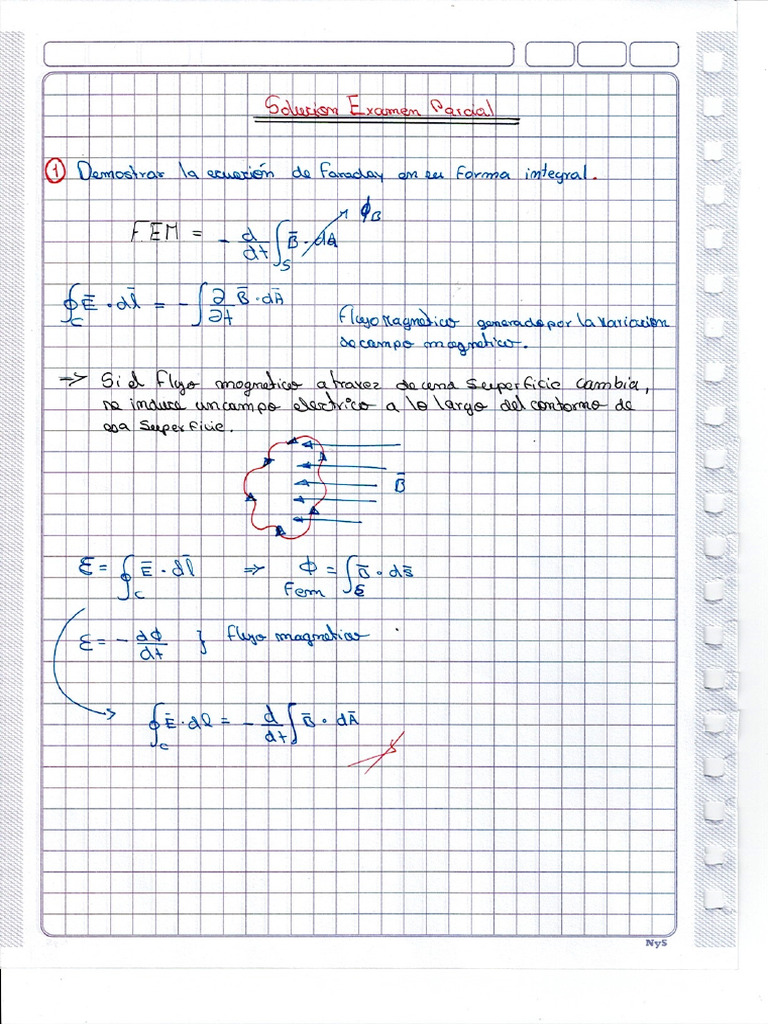 Solucion Examen Parcial
① Demostrar la ecuación de Faraday en su forma integral.
FEM = - d/dt ∫_S B̄ · dA ϕ_B
∮_C Ē · dl̄ = - ∫ ∂/∂t B̄ · dĀ
Flujo magnetico generado por la variacion
de campo magnetico.
=> Si el flujo mognetico a travez de una superficie cambia,
se induce un campo electrico a lo largo del contorno de
esa superficie.
B̄
ε = ∮_C Ē · dl̄ => ϕ = ∫_Σ B̄ · ds̄
Fem
ε = - dϕ/dt } flujo magnetico
∮_C Ē · dl = - d/dt ∫ B̄ · dĀ
NyS